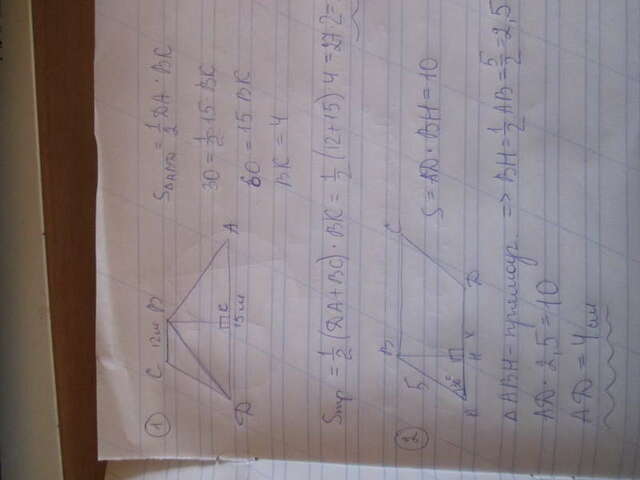 ①
C 12см B
D 15см К A
S△ABD = 1/2 DA · BK
30 = 1/2 · 15 BK
60 = 15 BK
BK = 4
Sтр = 1/2 (DA + BC) · BK = 1/2 (12+15) 4 = 27·2=
②
B C
5
30°
A H x D
S = AD · BH = 10
△ABH - прямоуг. => BH = 1/2 AB = 5/2 = 2,5
AD · 2,5 = 10
AD = 4 см